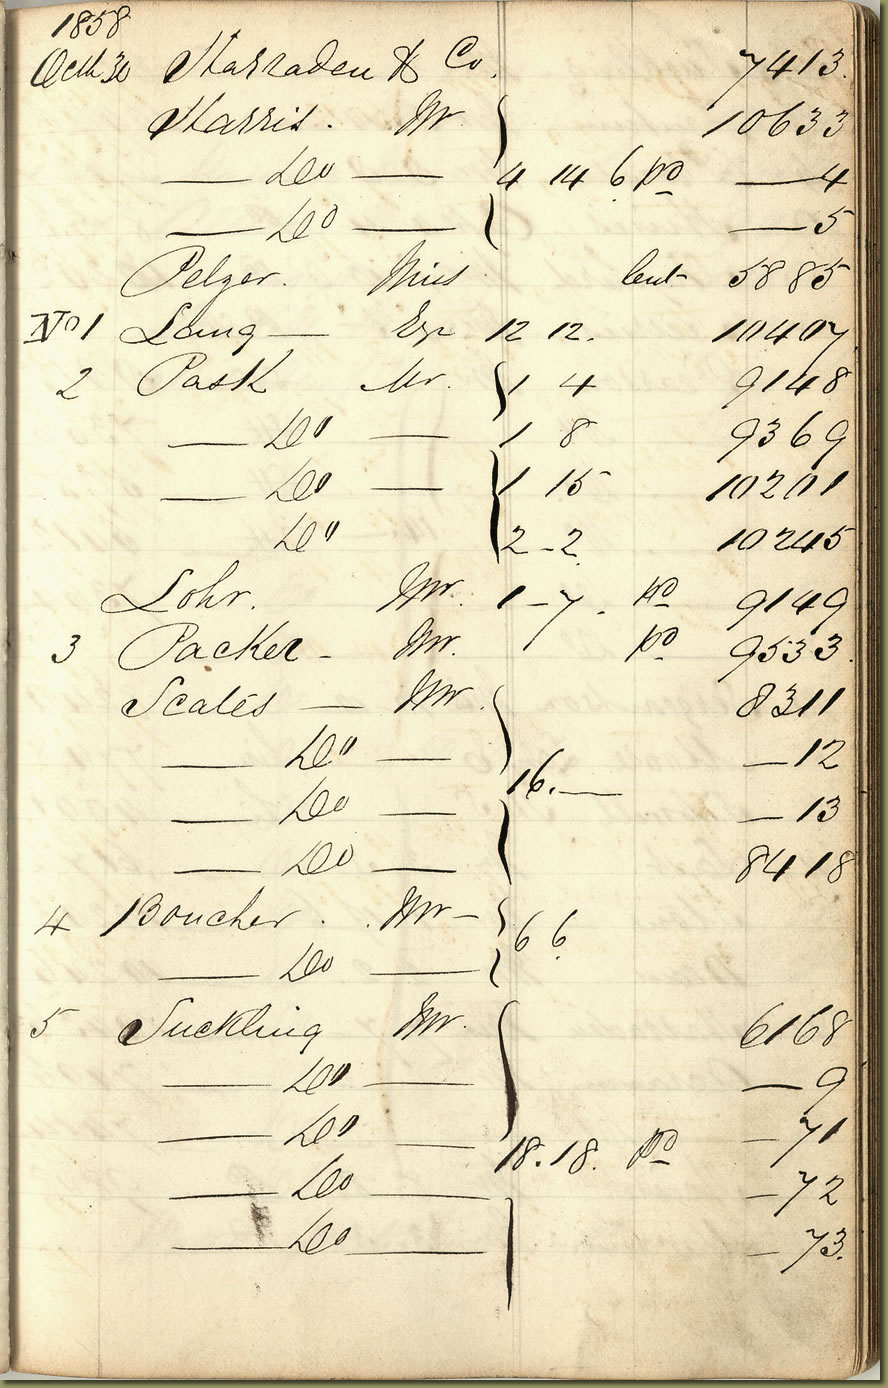 1858
Octr 30 Harraden & Co. 7413.
Harris. Mr. 10633
— Do — 4 14 6 pd — 4
— Do — — 5
Pelzer. Miss lent 5885
No 1 Lang — Esq 12 12. 10407
2 Pask Mr. 1 4 9148
— Do — 1 8 9369
— Do — 1 15 10201
Do 2 - 2 10245
Lohr. Mr. 1 - 7. pd 9149
3 Packer - Mr. pd 9533.
Scates — Mr. 8311
— Do — — 12
16. —
— Do — — 13
— Do — 8418
4 Boucher. Mr —
6 6.
— Do —
5 Suckling Mr. 6168
— Do — — 9
— Do — — 71
18. 18. pd
— Do — — 72
— Do — — 73.